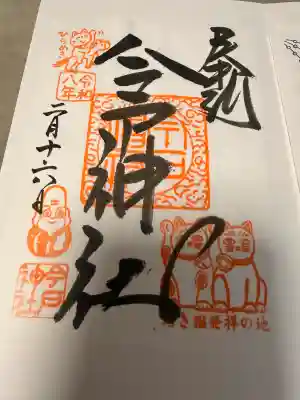 奉拝
今戸神社
令和
八年
二月十六日
今戸
神社
招き猫発祥の地